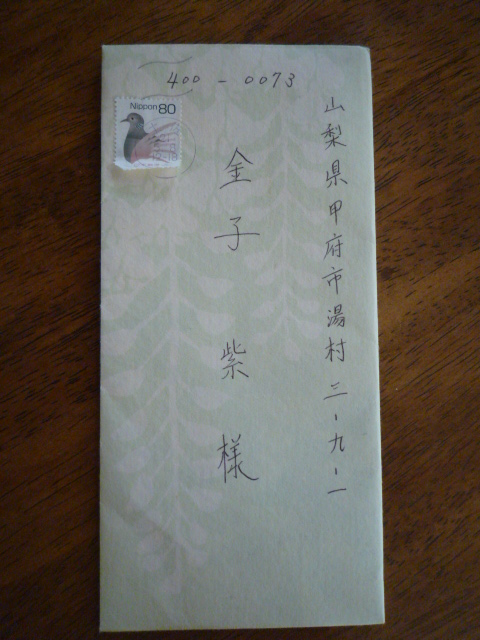 400-0073
Nippon 80
山梨県甲府市湯村三-九-一
金子 紫 様